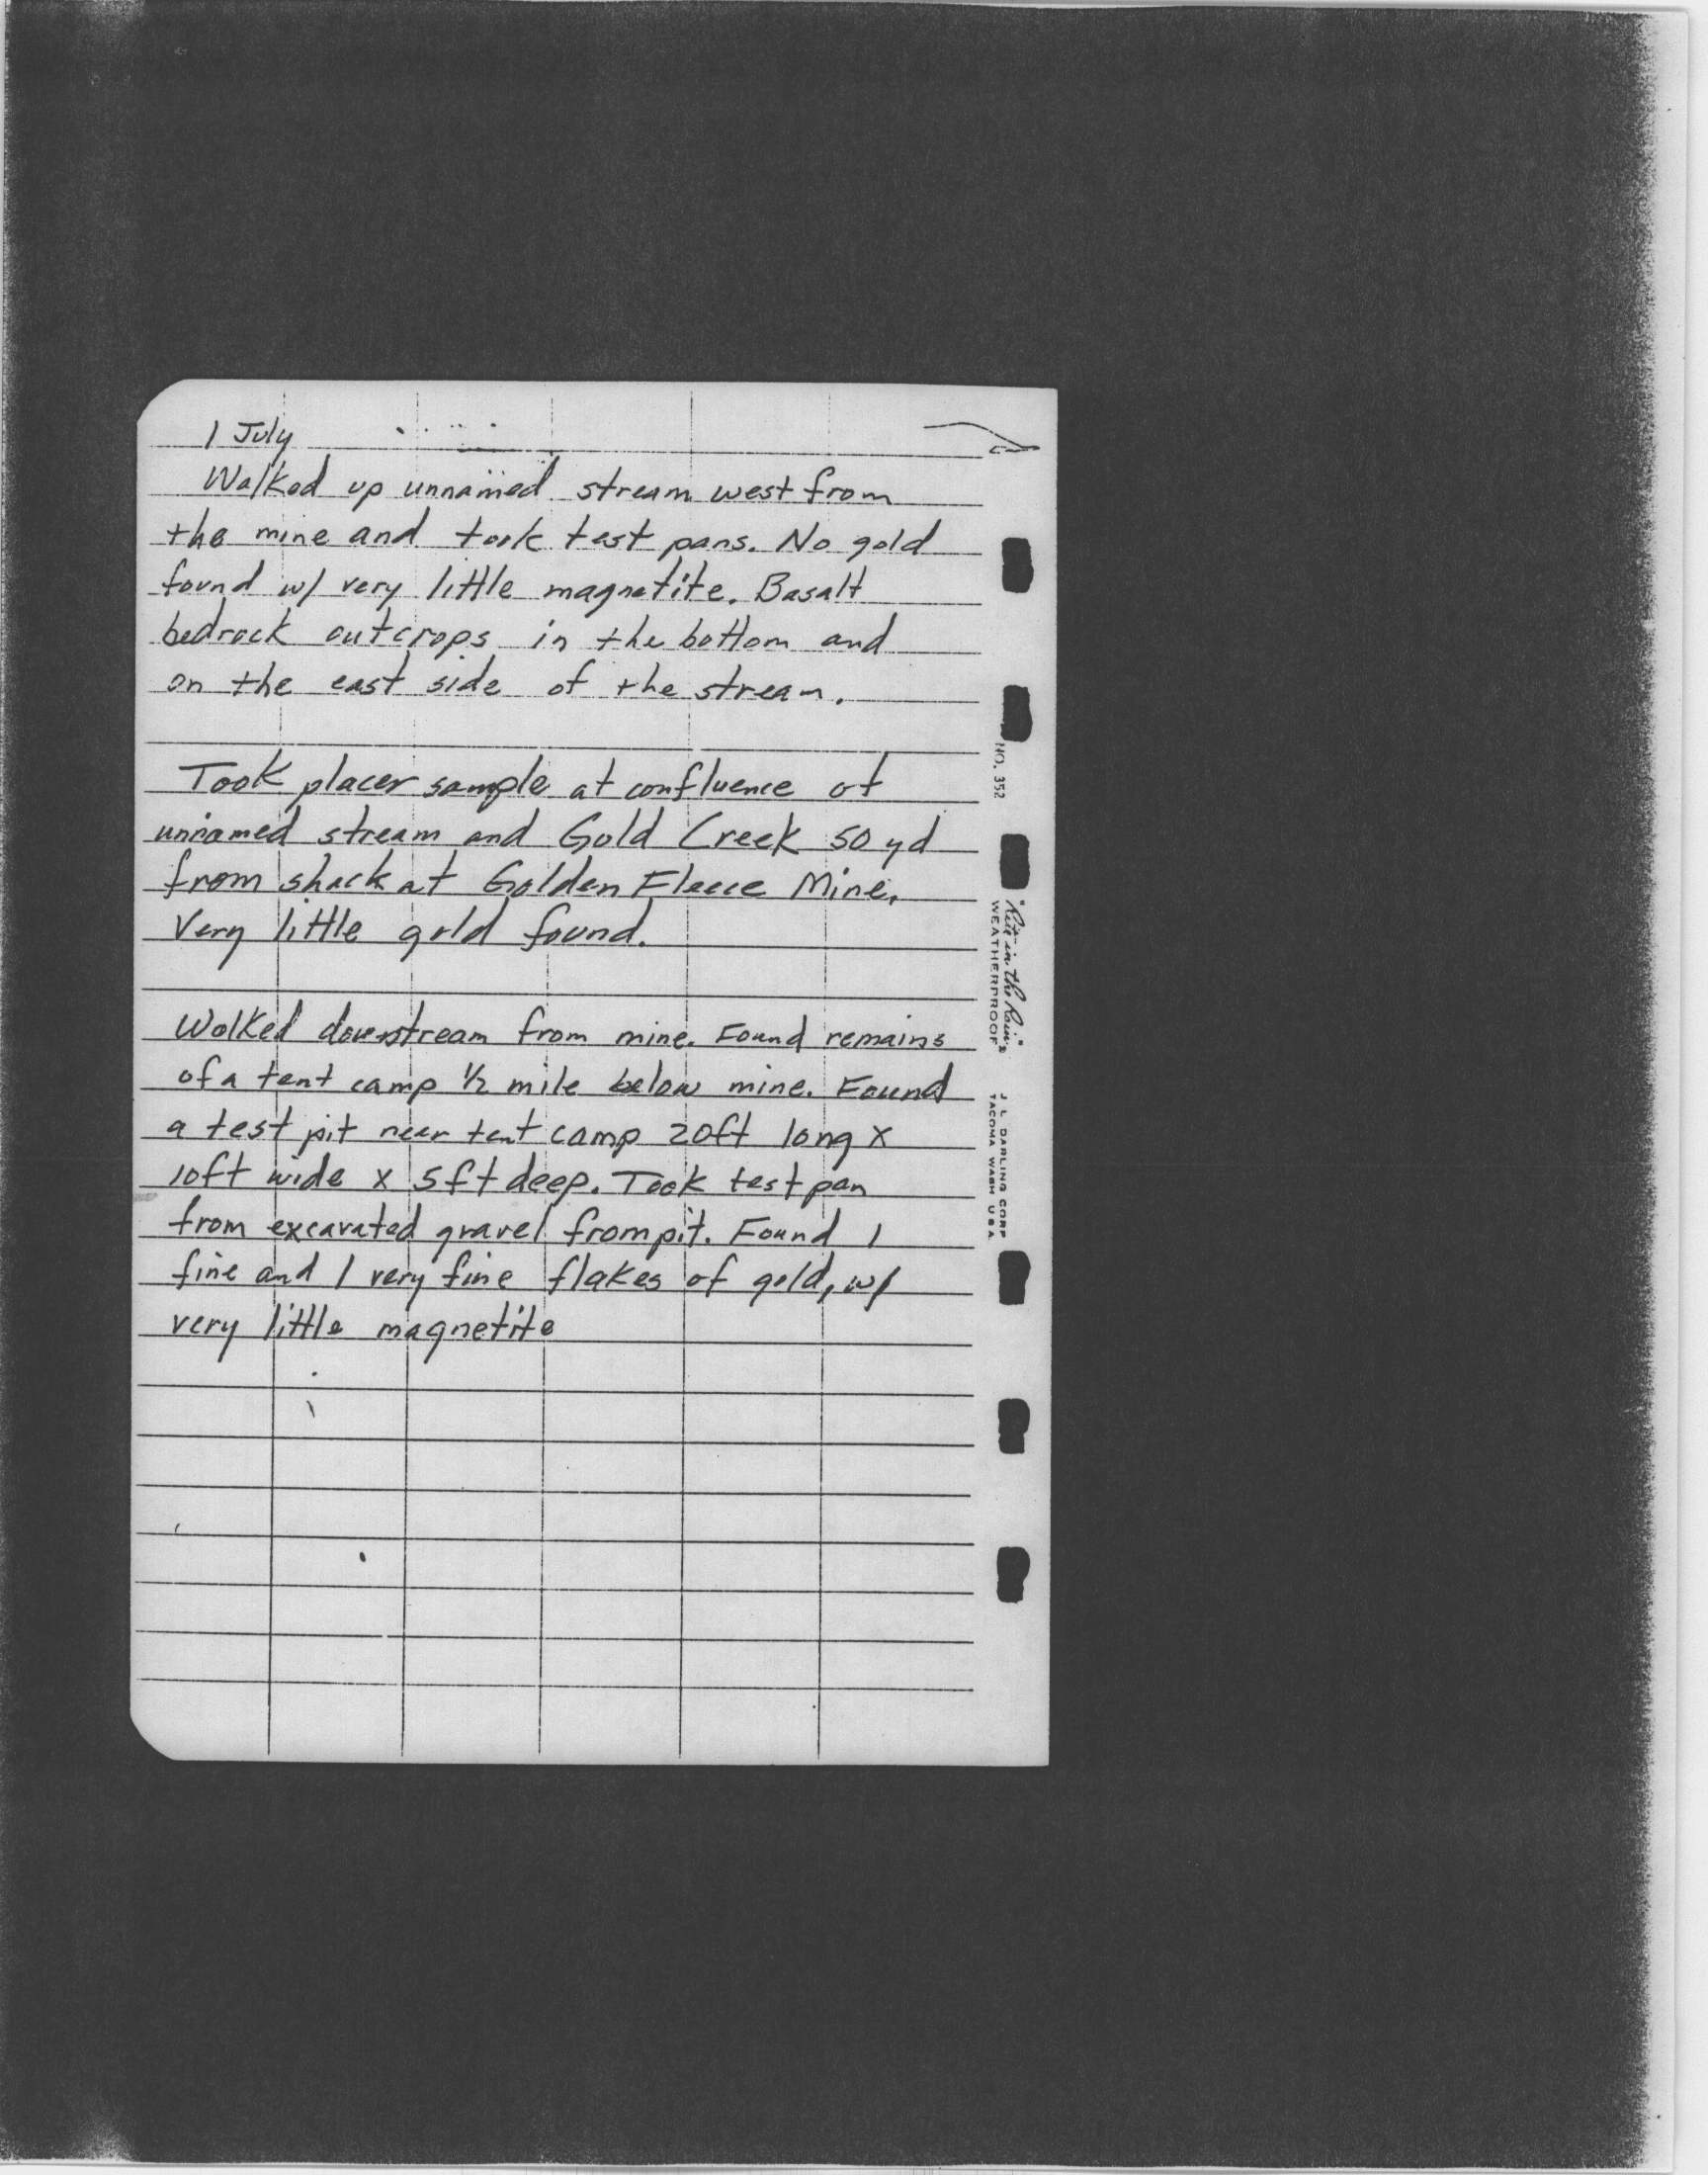 1 July
Walked up unnamed stream west from
the mine and took test pans. No gold
found w/ very little magnetite. Basalt
bedrock outcrops in the bottom and
on the east side of the stream.
Took placer sample at confluence of
unnamed stream and Gold Creek 50 yd
from shack at Golden Fleece Mine.
Very little gold found.
Walked downstream from mine. Found remains
of a tent camp 1/2 mile below mine. Found
a test pit near tent camp 20ft long x
10ft wide x 5ft deep. Took test pan
from excavated gravel from pit. Found 1
fine and 1 very fine flakes of gold, w/
very little magnetite
NO. 352
"Rite in the Rain"
WEATHERPROOF
J. L. DARLING CORP
TACOMA WASH USA